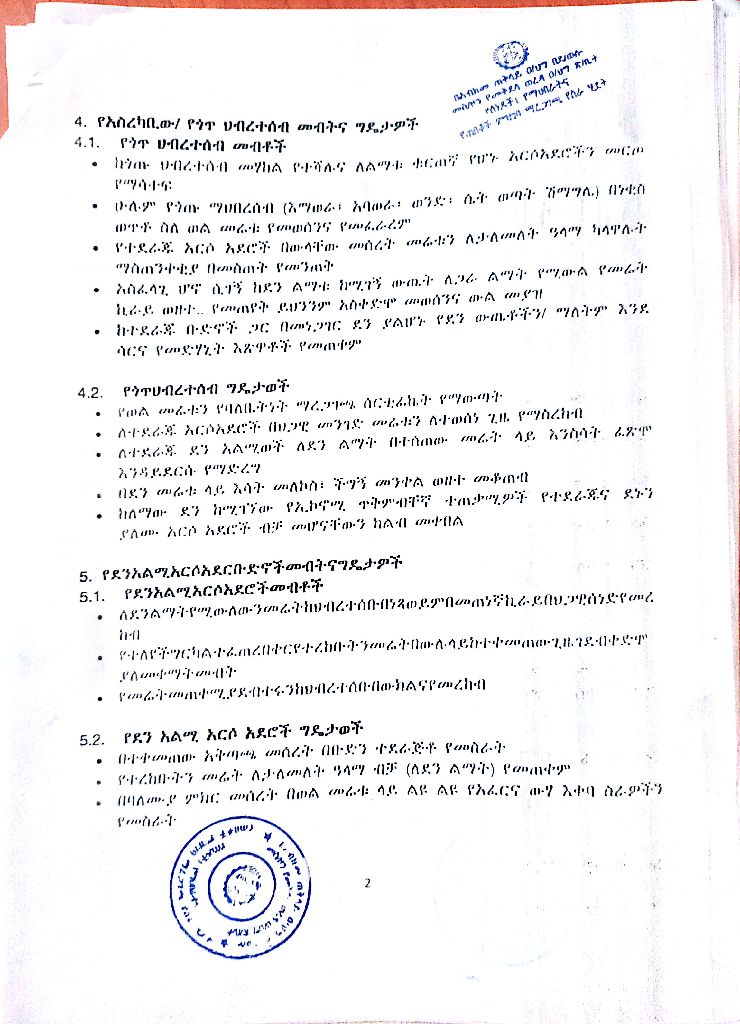 4. የአስረካቢው/ የጎጥ ህብረተሰብ መብትና ግዴታዎች
4.1. የጎጥ ህብረተሰብ መብቶች
• ከጎጡ ህብረተሰብ መሃከል የተሻሉና ለልማቱ ቁርጠኛ የሆኑ አርሶአደሮችን መርጦ
የማሳተፍ
• ሁሉም የጎጡ ማህበረሰብ (እማወራ፣ አባወራ፣ ወንድ፣ ሴት ወጣት ሽማግሌ) በነቂስ
ወጥቶ ስለ ወል መሬቱ የመወሰንና የመፈራረም
• የተደራጁ አርሶ አደሮች በውላቸው መሰረት መሬቱን ለታለመለት ዓላማ ካላዋሉት
ማስጠንቀቂያ በመስጠት የመንጠት
• አስፈላጊ ሆኖ ሲገኝ ከደን ልማቱ ከሚገኝ ውጤት ለጋራ ልማት የሚውል የመሬት
ኪራይ ወዘተ.. የመጠየት ይህንንም አስቀድሞ መወሰንና ውል መያዝ
• ከተደራጁ ቡድኖች ጋር በመነጋገር ደን ያልሆኑ የደን ውጤቶችን/ ማለትም እንደ
ሳርና የመድሃኒት እጽዋቶች የመጠቀም
4.2. የጎጥህብረተሰብ ግዴታወች
• የወል መሬቱን የባለቤትነት ማረጋጫ ሰርቲፊኬት የማውጣት
• ለተደራጁ አርሶአደሮች በህጋዊ መንገድ መሬቱን ለተወሰነ ጊዜ የማስረከብ
• ለተደራጁ ደን አልሚወች ለደን ልማት በተሰጠው መሬት ላይ እንስሳት ፈጽሞ
እንዳይደርሱ የማድረግ
• በደን መሬቱ ላይ እሳት መለኮስ፣ ችግኝ መንቀል ወዘተ መቆጠብ
• ከለማው ደን ከሚገኘው የኢኮኖሚ ጥቅምብቸኛ ተጠቃሚዎች የተደራጁና ደኑን
ያለሙ አርሶ አደሮች ብቻ መሆናቸውን ከልብ መቀበል
5. የደንአልሚአርሶአደርቡድኖችመብትናግዴታዎች
5.1. የደንአልሚአርሶአደሮችመብቶች
• ለደንልማትየሚውለውንመሬትከህብረተሰቡበነጻወይምበመጠነኛኪራይበህጋዊሰነድየመረ
ከብ
ያለመቀማትመብት
• የመሬትመጠቀሚያደብተሩንከህብረተሰቡበውክልናየመረከብ
5.2. የደን አልሚ አርሶ አደሮች ግዴታወች
• በተቀመጠው አቅጣጫ መሰረት በቡድን ተደራጅቶ የመስራት
• የተረከቡትን መሬት ለታለመለት ዓላማ ብቻ (ለደን ልማት) የመጠቀም
• በባለሙያ ምክር መሰረት በወል መሬቱ ላይ ልዩ ልዩ የአፈርና ውሃ እቀባ ስራዎችን
የመስራት
2